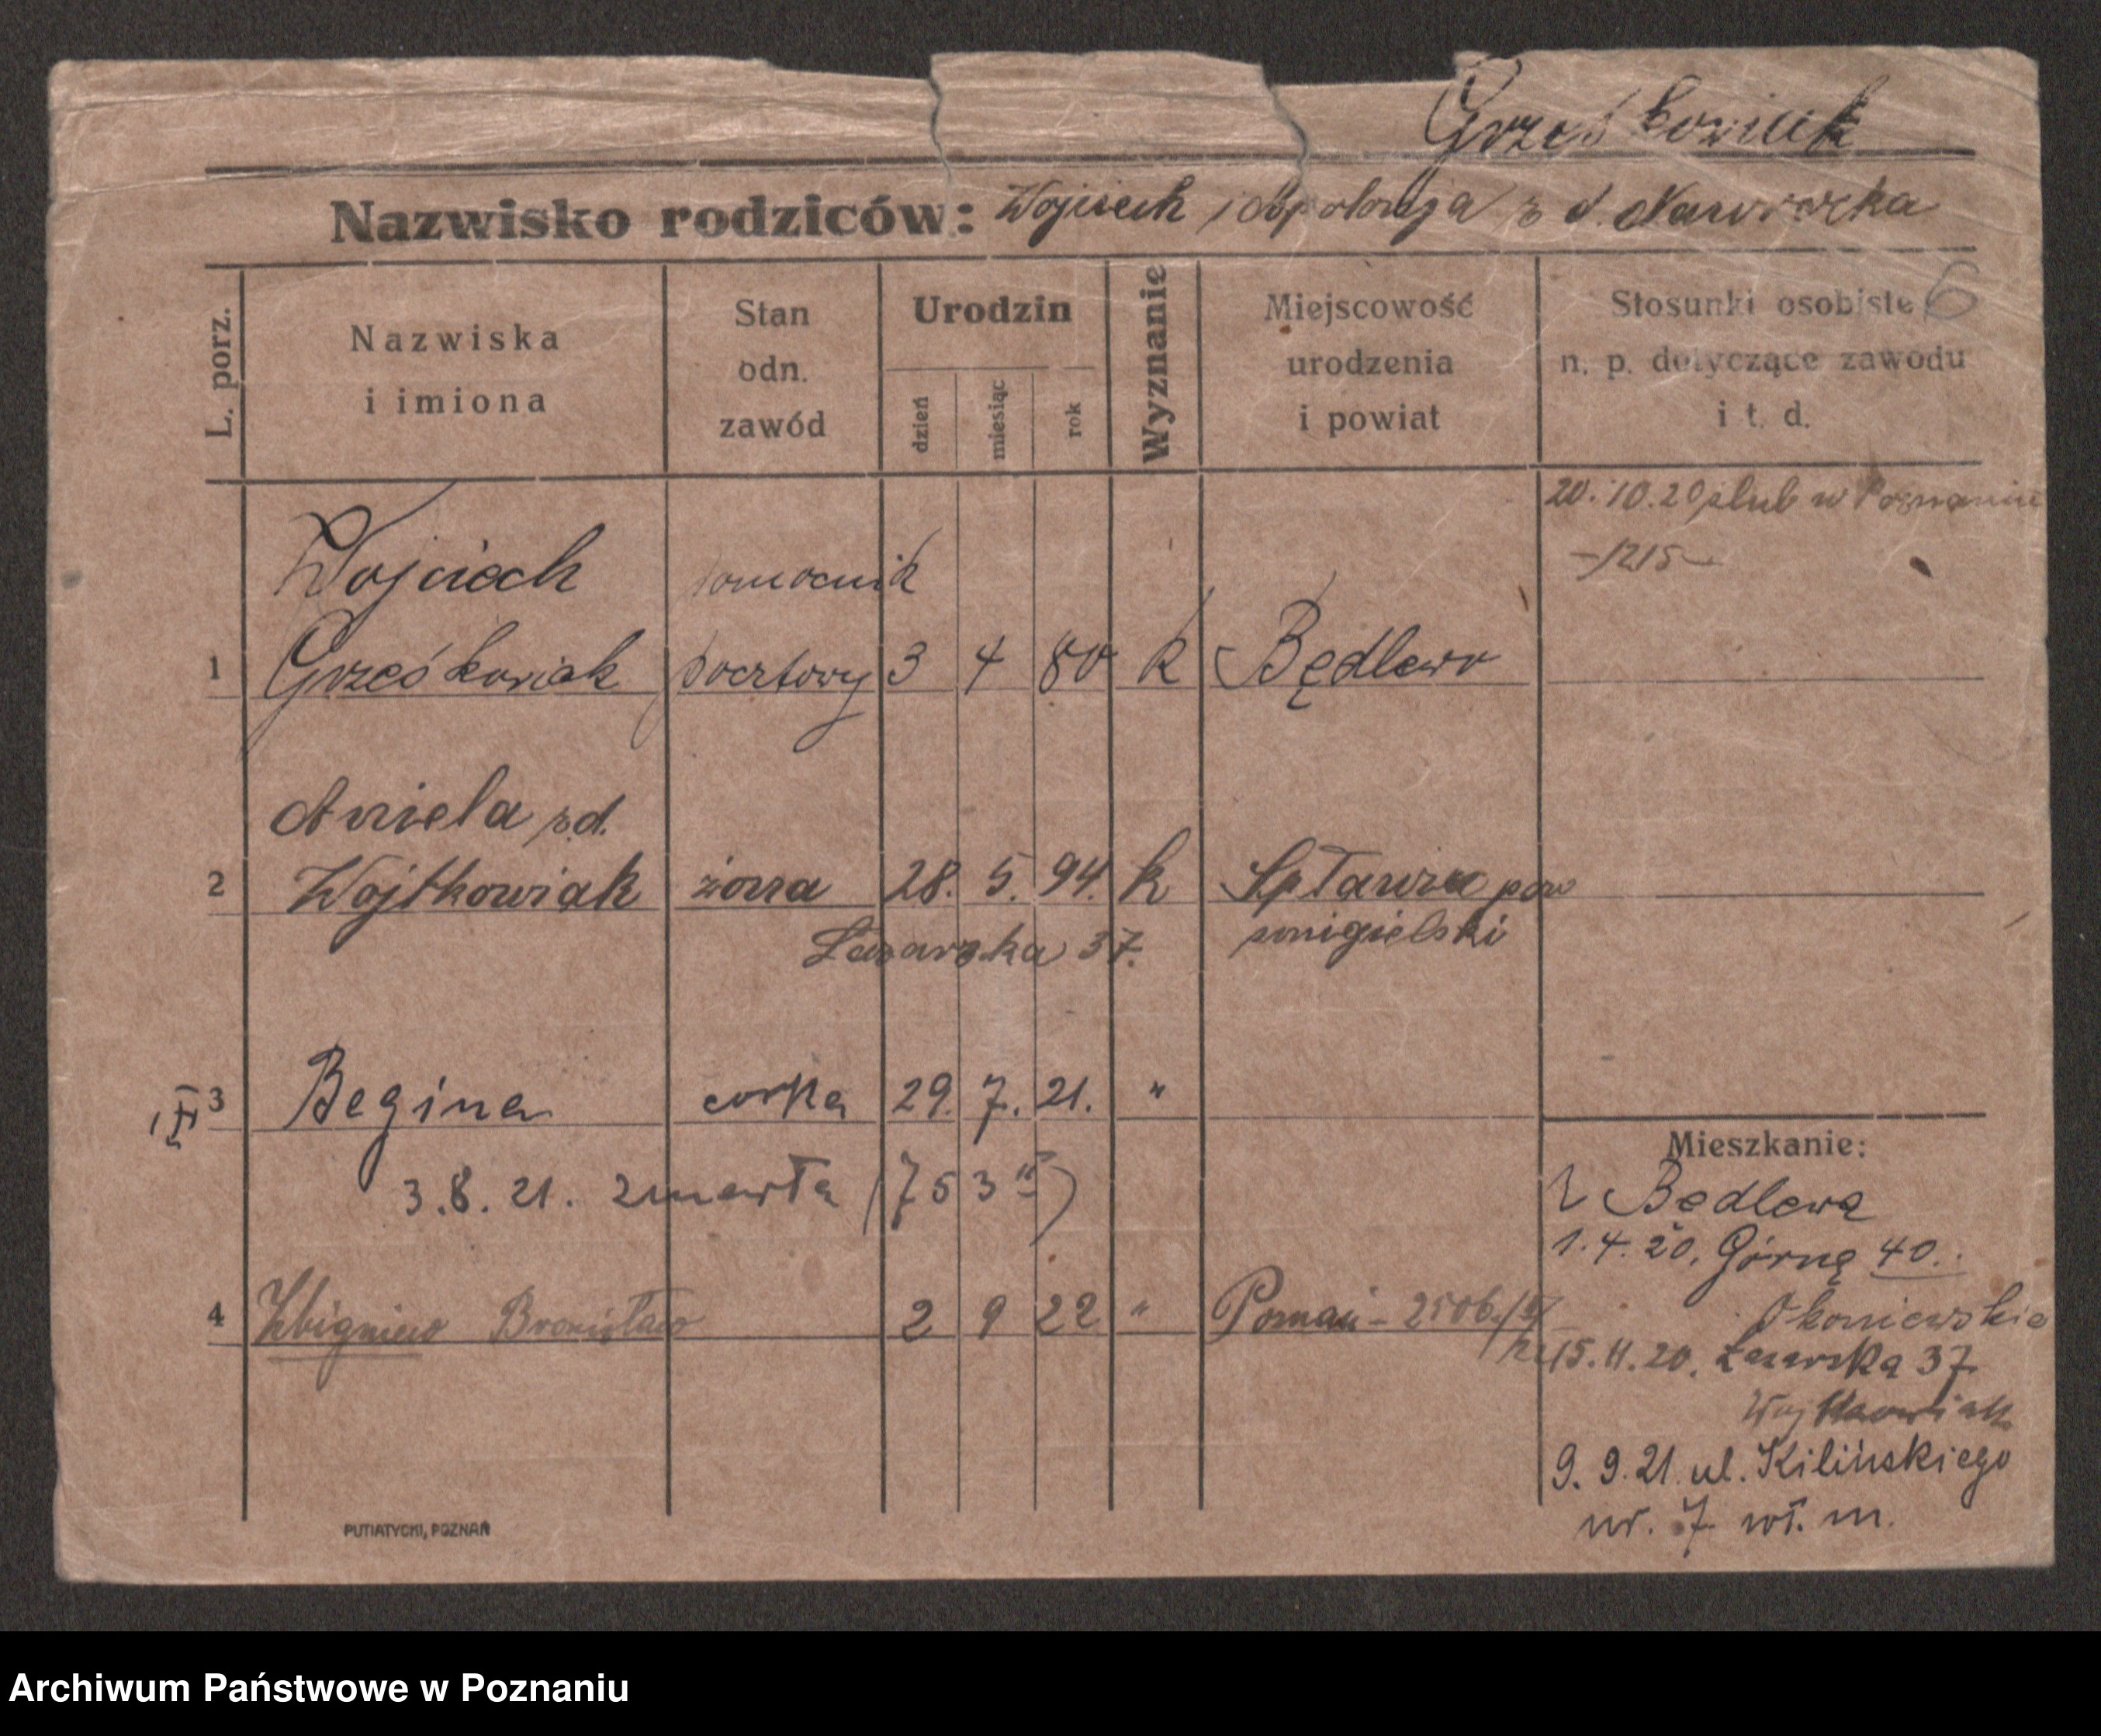 Grześkowiak
Nazwisko rodziców: Wojciech i Apolonja z d. Nawrocka
6
L. porz.
Nazwiska
i imiona
Stan
odn.
zawód
Urodzin
dzień
miesiąc
rok
Wyznanie
Miejscowość
urodzenia
i powiat
Stosunki osobiste
n. p. dotyczące zawodu
i t. d.
20.10.20 ślub w Poznaniu
-1215-
Wojciech pomocnik
1 Grześkowiak pocztowy 3 4 80 k Będlewo
Aniela z d.
2 Wojtkowiak żona 28. 5. 94. k Spławie pow
śmigielski
Łazarska 37.
3 Regina corka 29. 7. 21. "
3.8.21. zmarła (753 15)
4 Zbigniew Bronisław 2 9 22 " Poznań - 2506
Mieszkanie:
z Będlewa
1.4.20. Górna 40.
Okoniewskie
15.11.20. Łazarska 37
Wojtkowiak
9.9.21. ul. Kilińskiego
nr. 7 wł. m.
PUTIATYCKI, POZNAŃ
Archiwum Państwowe w Poznaniu